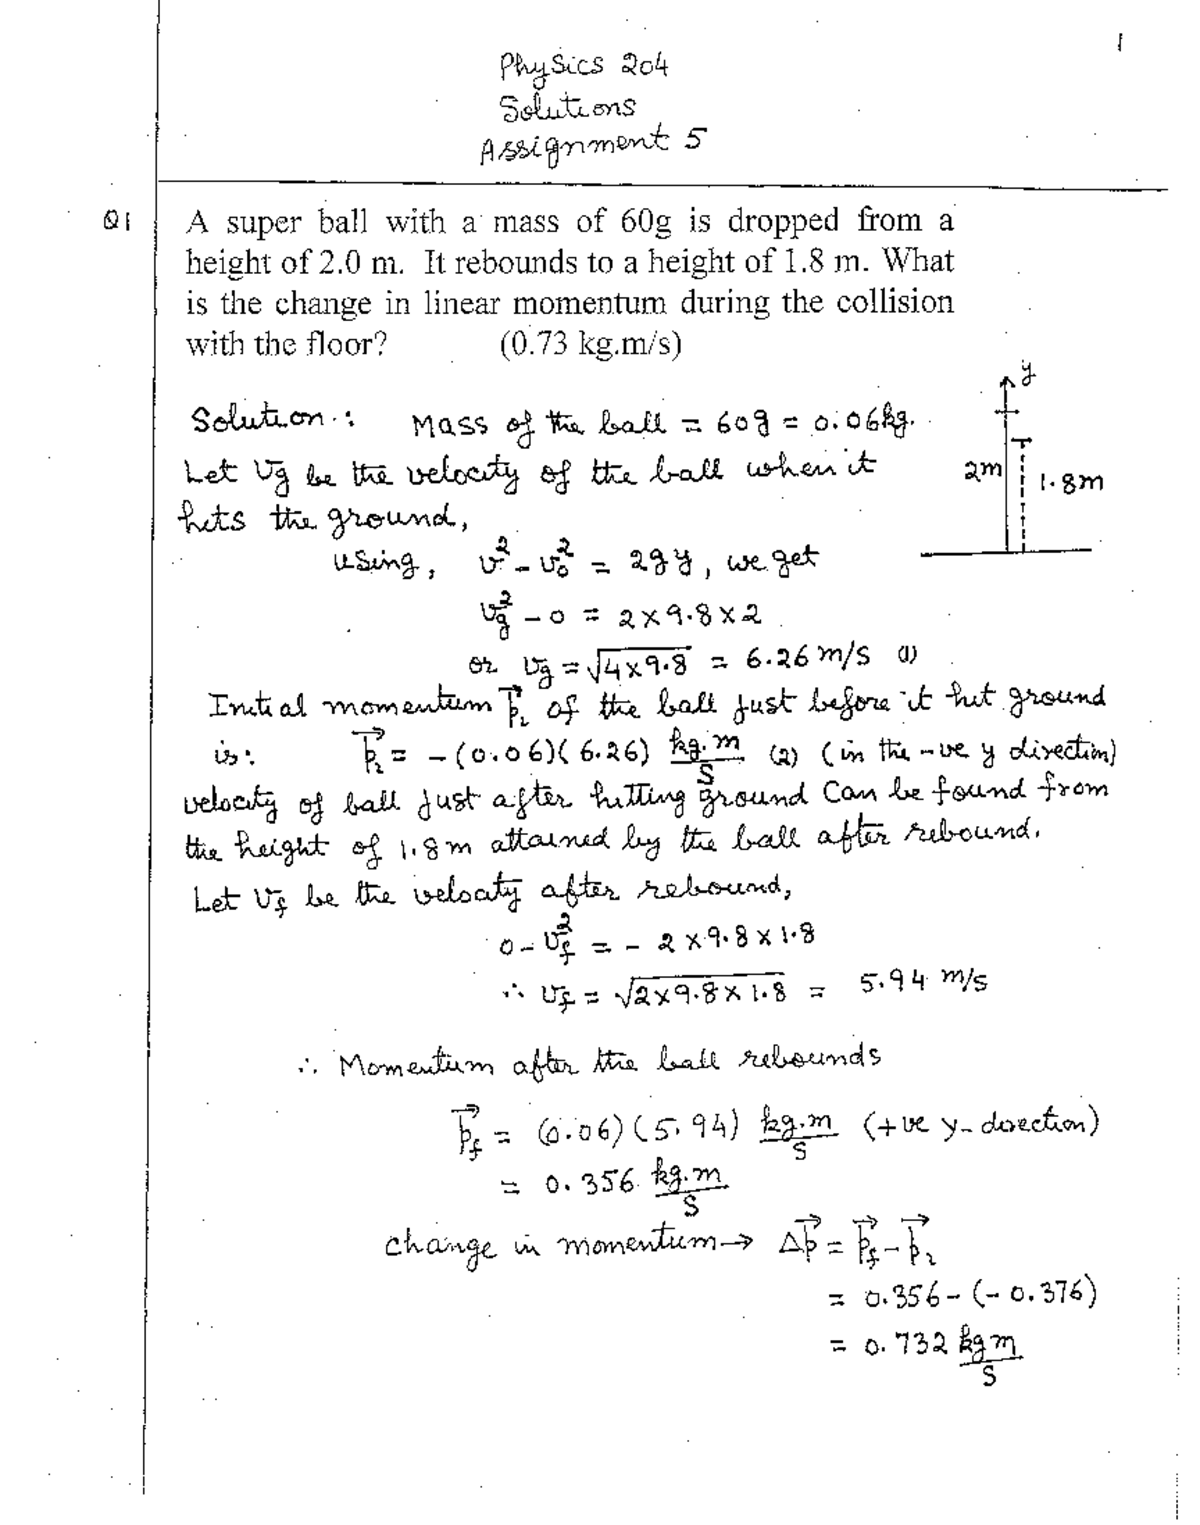 1
Physics 204
Solutions
Assignment 5
Q1 A super ball with a mass of 60g is dropped from a
height of 2.0 m. It rebounds to a height of 1.8 m. What
is the change in linear momentum during the collision
with the floor? (0.73 kg.m/s)
y
Solution: Mass of the ball = 60g = 0.06kg.
2m 1.8m
Let vg be the velocity of the ball when it
hits the ground,
using, v² - v₀² = 2gy, we get
vg² - 0 = 2×9.8×2
or vg = √4×9.8 = 6.26 m/s (1)
Initial momentum p⃗ᵢ of the ball just before it hit ground
is: p⃗ᵢ = -(0.06)(6.26) kg.m/s (2) (in the -ve y direction)
velocity of ball just after hitting ground can be found from
the height of 1.8m attained by the ball after rebound.
Let vf be the velocity after rebound,
0 - vf² = - 2×9.8×1.8
∴ vf = √2×9.8×1.8 = 5.94 m/s
∴ Momentum after the ball rebounds
p⃗f = (0.06)(5.94) kg.m/s (+ve y-direction)
= 0.356 kg.m/s
change in momentum → Δp⃗ = p⃗f - p⃗ᵢ
= 0.356 - (-0.376)
= 0.732 kgm/s